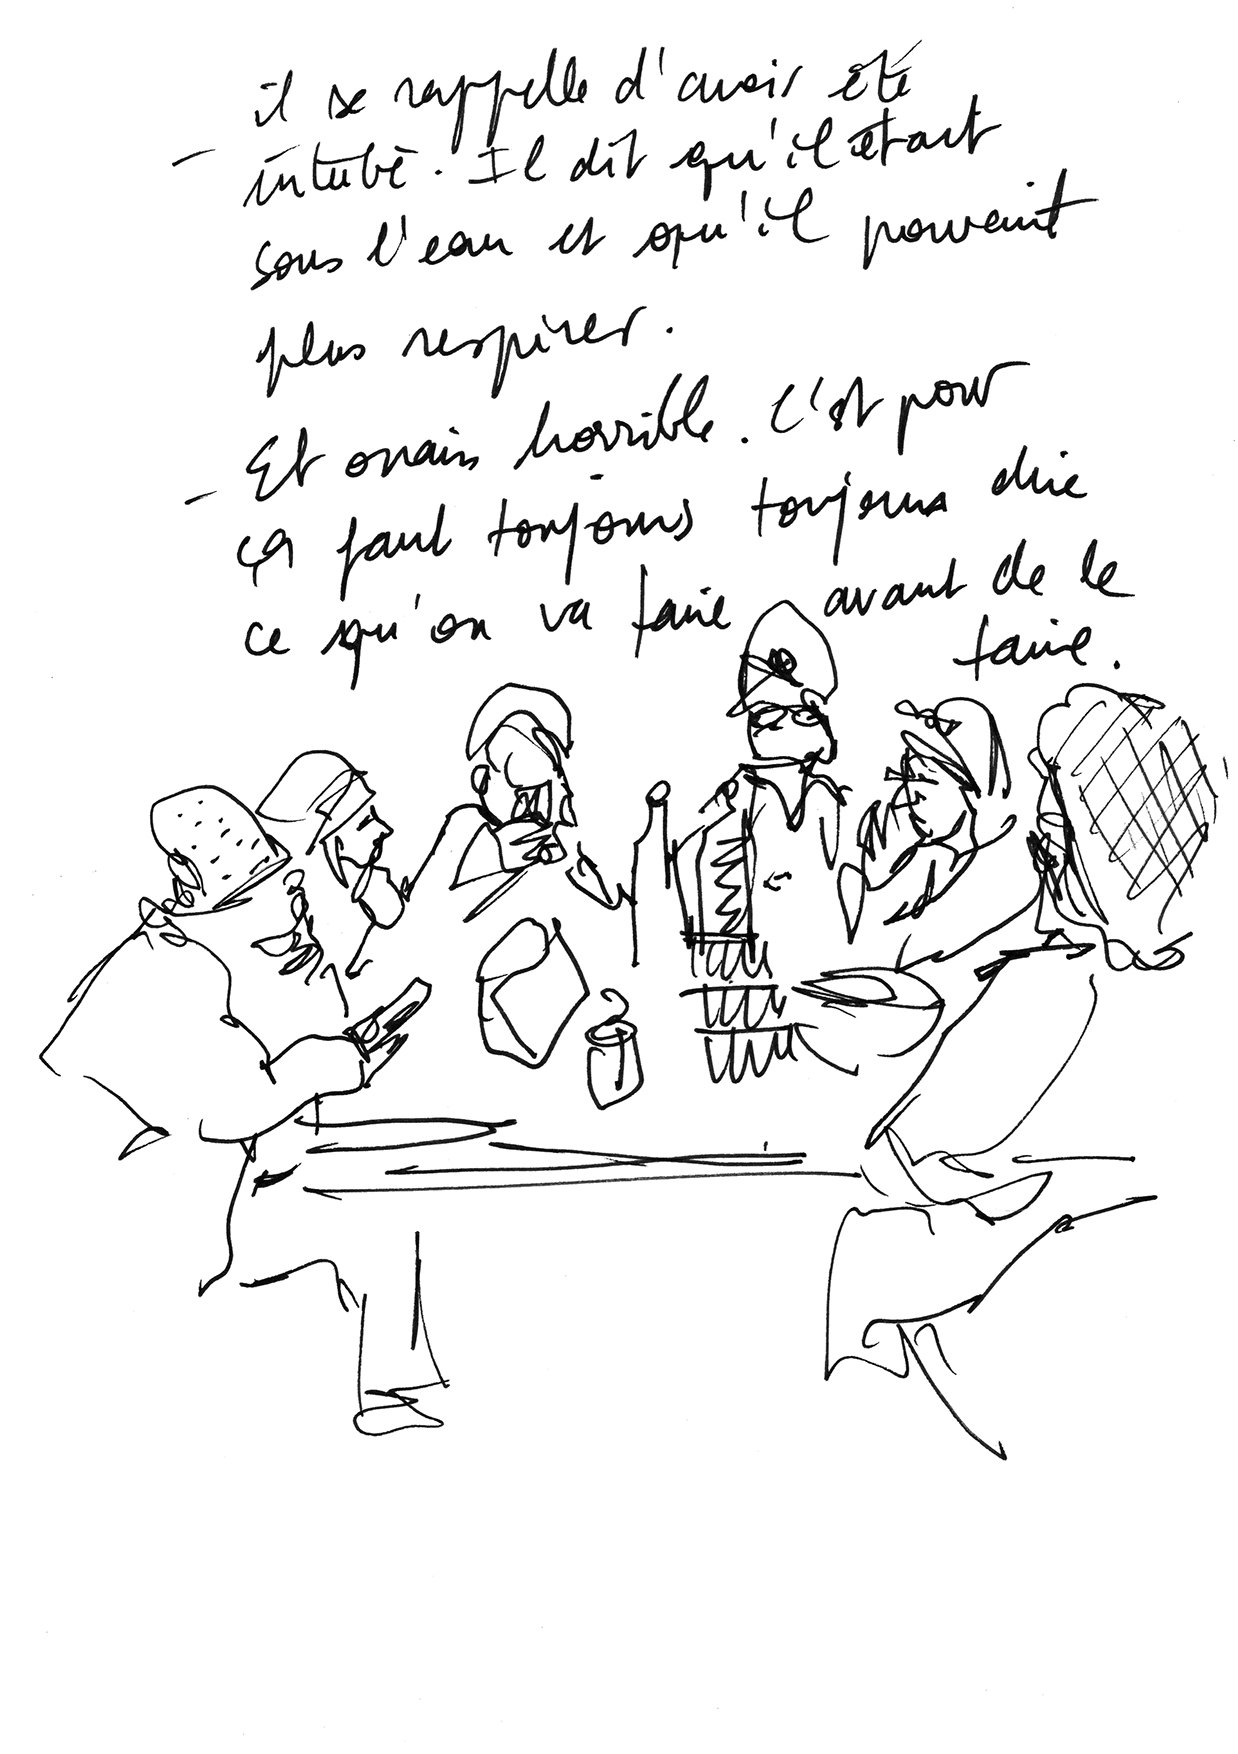 il se rappelle d'avoir été
– intubé. Il dit qu'il était
sous l'eau et qu'il pouvait
plus respirer.
– Et ouais horrible. C'est pour
ça faut toujours toujours dire
ce qu'on va faire avant de le
faire.